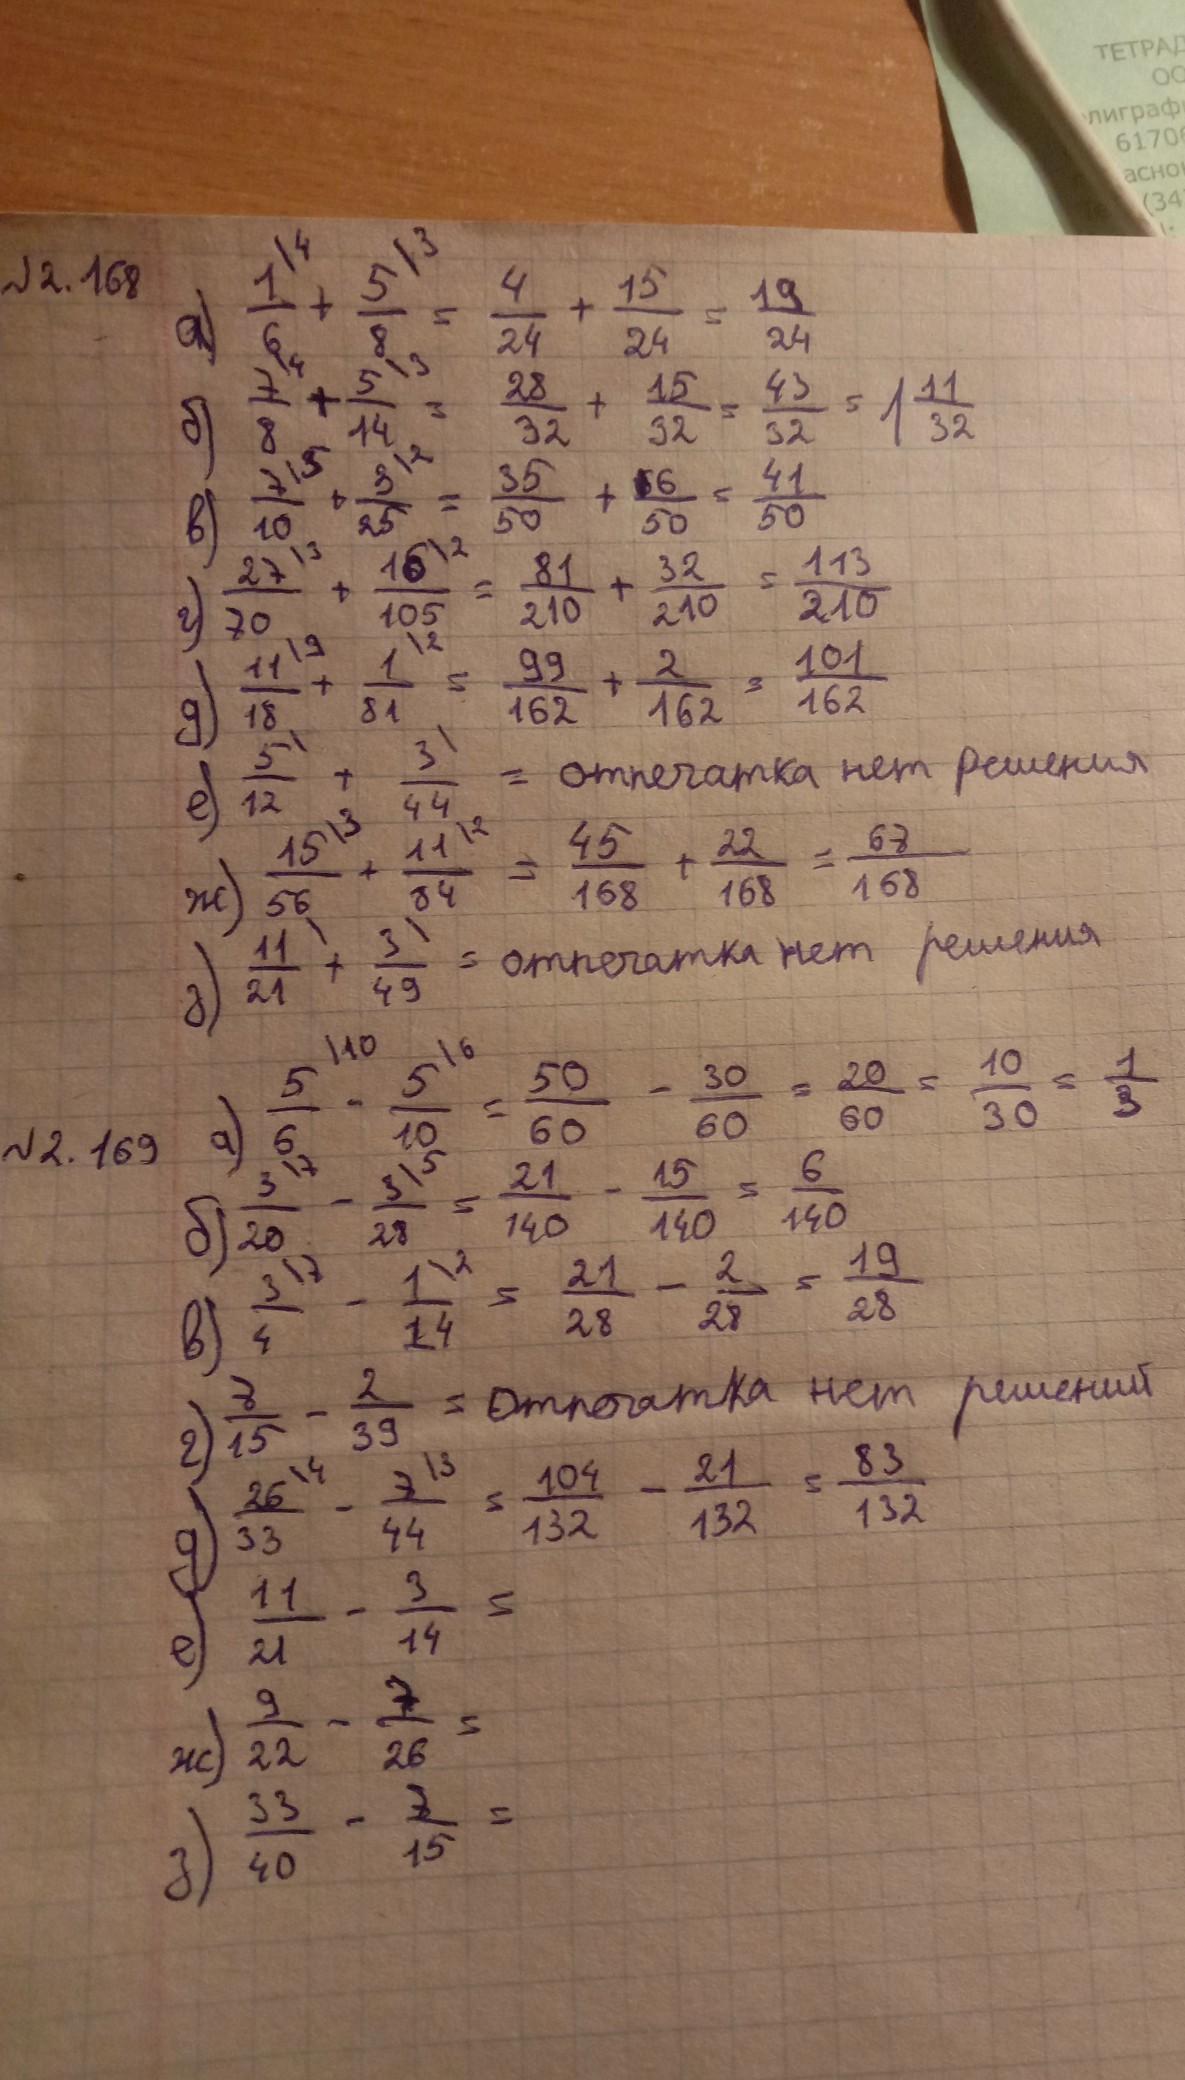 ТЕТРАД
ОО
лиграф
6170
асно
(34
№2.168
а) 1\4/6 + 5\3/8 = 4/24 + 15/24 = 19/24
б) 7\4/8 + 5\3/14 = 28/32 + 15/32 = 43/32 = 1 11/32
в) 7\5/10 + 3\2/25 = 35/50 + 6/50 = 41/50
г) 27\3/70 + 16\2/105 = 81/210 + 32/210 = 113/210
д) 11\9/18 + 1\2/81 = 99/162 + 2/162 = 101/162
е) 5\/12 + 3\/44 = отпечатка нет решения
ж) 15\3/56 + 11\2/84 = 45/168 + 22/168 = 67/168
з) 11\/21 + 3\/49 = отпечатка нет решения
№2.169
а) 5\10/6 - 5\6/10 = 50/60 - 30/60 = 20/60 = 10/30 = 1/3
б) 3\7/20 - 3\5/28 = 21/140 - 15/140 = 6/140
в) 3\7/4 - 1\2/14 = 21/28 - 2/28 = 19/28
г) 7/15 - 2/39 = Отпечатка нет решений
д) 26\4/33 - 7\3/44 = 104/132 - 21/132 = 83/132
е) 11/21 - 3/14 =
ж) 9/22 - 7/26 =
з) 33/40 - 7/15 =